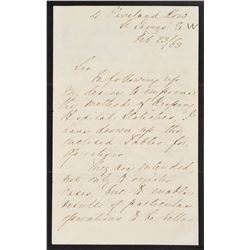 4 Cleveland Row
St James, S.W
Feb 23/63
Sir
In following up
my desire to improve
the method of keeping
Hospital Statistics, I
have drawn up the
enclosed Tables for
operations.
They are intended
not only to register
cases, but to enable
results of particular
operations to be better